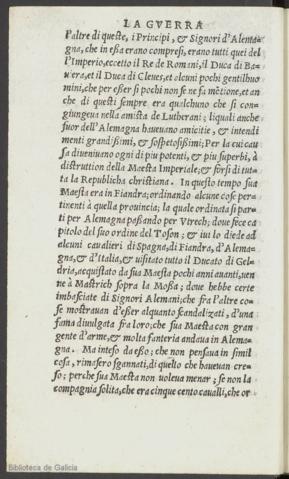 LA GVERRA
l'altre di queste, i Principi, & Signori d'Alema-
gna, che in eßa erano compresi, erano tutti quei del
l'Imperio, eccetto il Re de Romani, il Duca di Ba-
uiera, et il Duca di Cleues, et alcuni pochi gentilhuo
mini, che per eßer sì pochi non se ne fa mētione, et an
che di questi sempre era qualchuno che si con-
giungeua nella amistà de Lutherani; liquali anche
fuor dell'Alemagna haueuano amicitie, & intendi
menti grandißimi, & sospetosißimi: Per la cui cau
sa diueniuano ogni dì piu potenti, & piu superbi, à
distruttion della Maestà Imperiale, & forsi di tut-
ta la Republicha christiana. In questo tempo sua
Maestà era in Fiandra; ordinando alcune cose per-
tinenti à quella prouincia; la quale ordinata si par-
tì per Alemagna paßando per Vtrech; doue fece ca
pitolo del suo ordine del Toson; & iui lo diede ad
alcuni cauallieri di Spagna, di Fiandra, d'Alema-
gna, & d'Italia, & uisitato tutto il Ducato di Gel-
dria, acquistato da sua Maestà pochi anni auanti, uen
ne à Mastrich sopra la Moßa; doue hebbe certe
imbasciate di Signori Alemani; che frà l'altre co-
se mostrauan d'eßer alquanto scandalizati, d'una
fama diuulgata frà loro; che sua Maestà con gran
gente d'arme, & molta fanteria andaua in Alema-
gna. Ma inteso da eßo; che non pensaua in simil
cosa, rimasero sgannati, di quello che haueuan cre-
so; perche sua Maestà non uoleua menar; se non la
compagnia solita, che era cinque cento caualli, che or
Biblioteca de Galicia